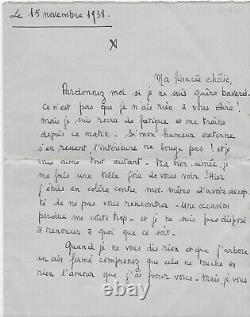 Le 15 novembre 1938.
Ma fiancée chérie,
Pardonnez moi si je ne suis guère bavard.
Ce n'est pas que je n'ais rien à vous dire!
mais je suis recru de fatigue et me traîne
depuis ce matin. Si mon humeur externe
s'en ressent l'intérieure ne bouge pas! et je
vous aime tout autant. Ma bien-aimée, je
me fais une telle joie de vous voir! Hier
j'étais en colère contre moi-même d'avoir accep-
té de ne pas vous rencontrer. Une occasion
perdue me coûte trop. et je ne suis pas disposé
à renoncer à quoi que ce soit.
Quand je ne vous dis rien et que j'arbore
un air fermé comprenez que cela ne touche en
rien l'amour que j'ai pour vous. Mais, je vous